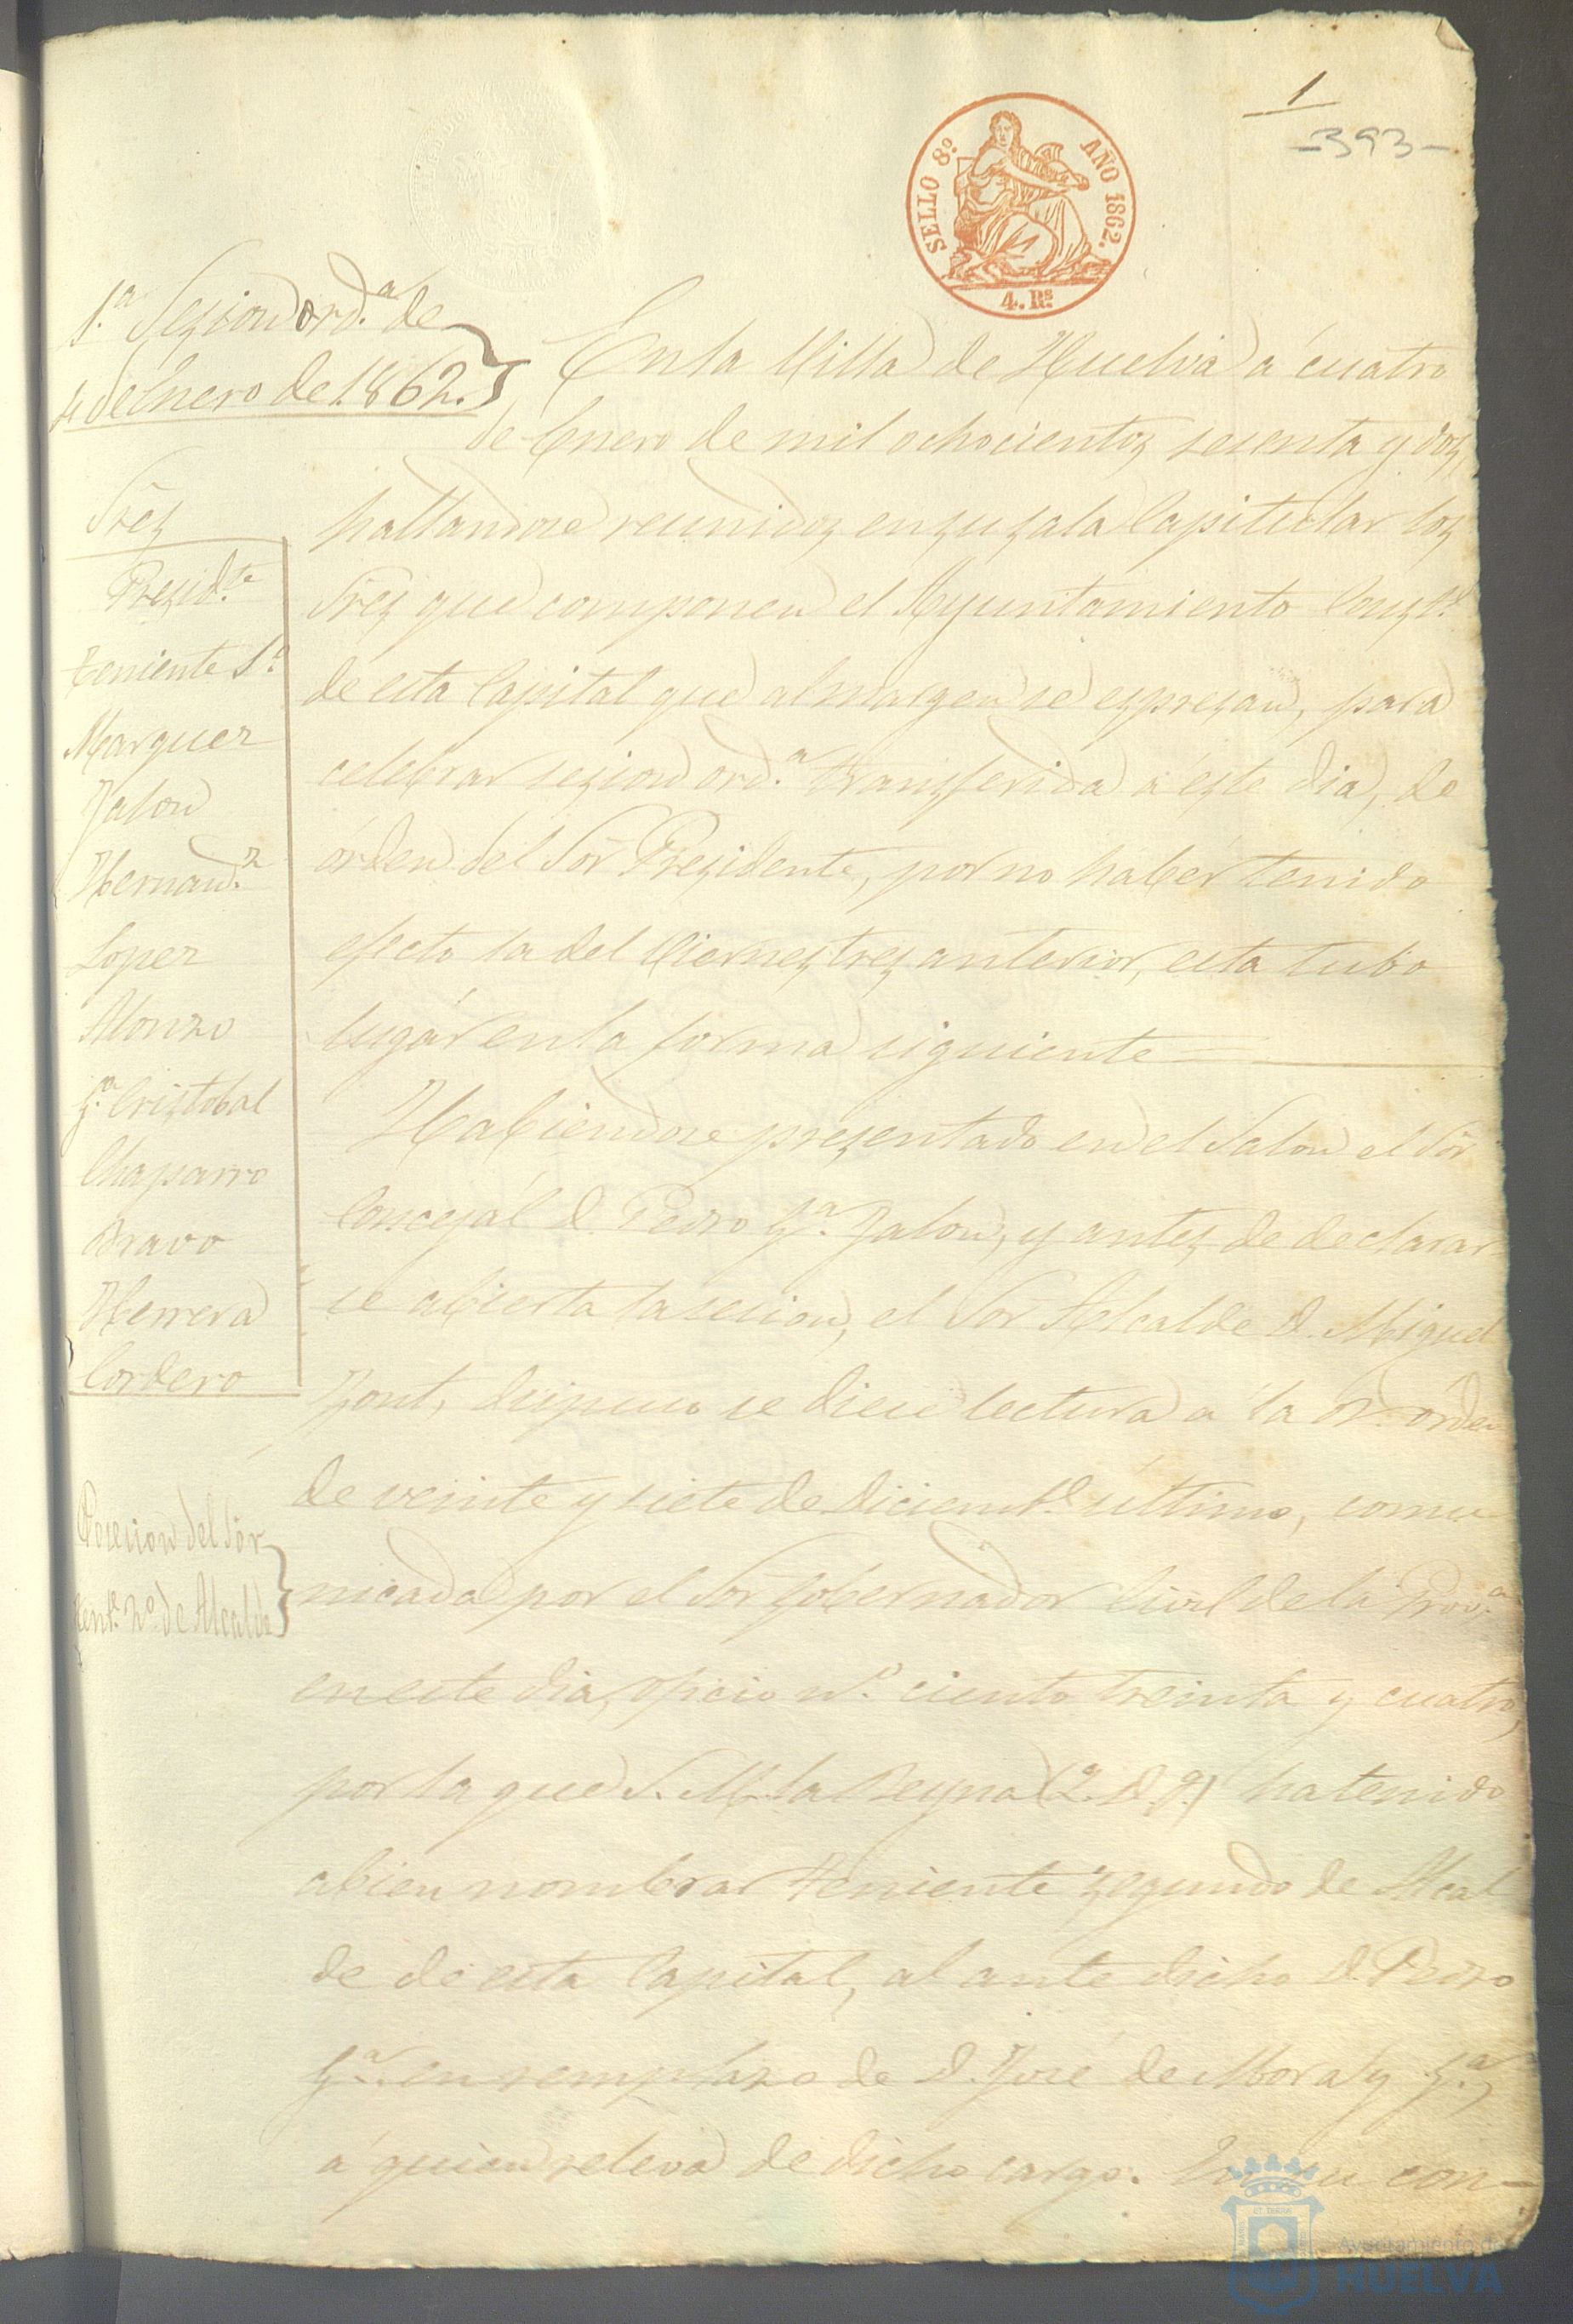 1
-393-
SELLO 8º AÑO 1862.
4. Rs.
1.ª Sesion ord.ª de
4 de Enero de 1862.
Sres
Presid.te
Teniente 1.º
Marquez
Jalon
Hernand.z
Lopez
Alonso
G.ª Cristobal
Chaparro
Bravo
Herrera
Cordero
Posesion del Sor
Tent.e 2º de Alcalde
En la Villa de Huelva á cuatro
de Enero de mil ochocientos sesenta y dos,
hallandose reunidos en su sala Capitular los
Sres que componen el Ayuntamiento Const.l
de esta Capital que al margen se espresan, para
celebrar sesion ord.ª transferida á este dia, de
órden del Sor Presidente, por no habér tenido
efecto la del Viernes tres anterior, esta tubo
lugár en la forma siguiente =
Habiendose presentado en el Salon el Sor
Concejál D. Pedro G.ª Jalon, y antes de declarar
se abierta la sesion, el Sor Alcalde D. Miguel
Jont, dispuso se diese lectura á la R. órden
de veinte y siete de Diciemb.e último, comu
nicada por el Sor Gobernador Civil de la Prov.ª
en este dia, oficio n.º ciento treinta y cuatro,
por la que S. M. la Reyna (Q. D. G.) ha tenido
a bien nombrar Teniente segundo de Alcal
de de esta Capital, al ante dicho D. Pedro
G.ª en remplazo de D. José de Mora y G.ª,
á quien releva de dicho cargo. En su con-
Ayuntamiento de
HUELVA